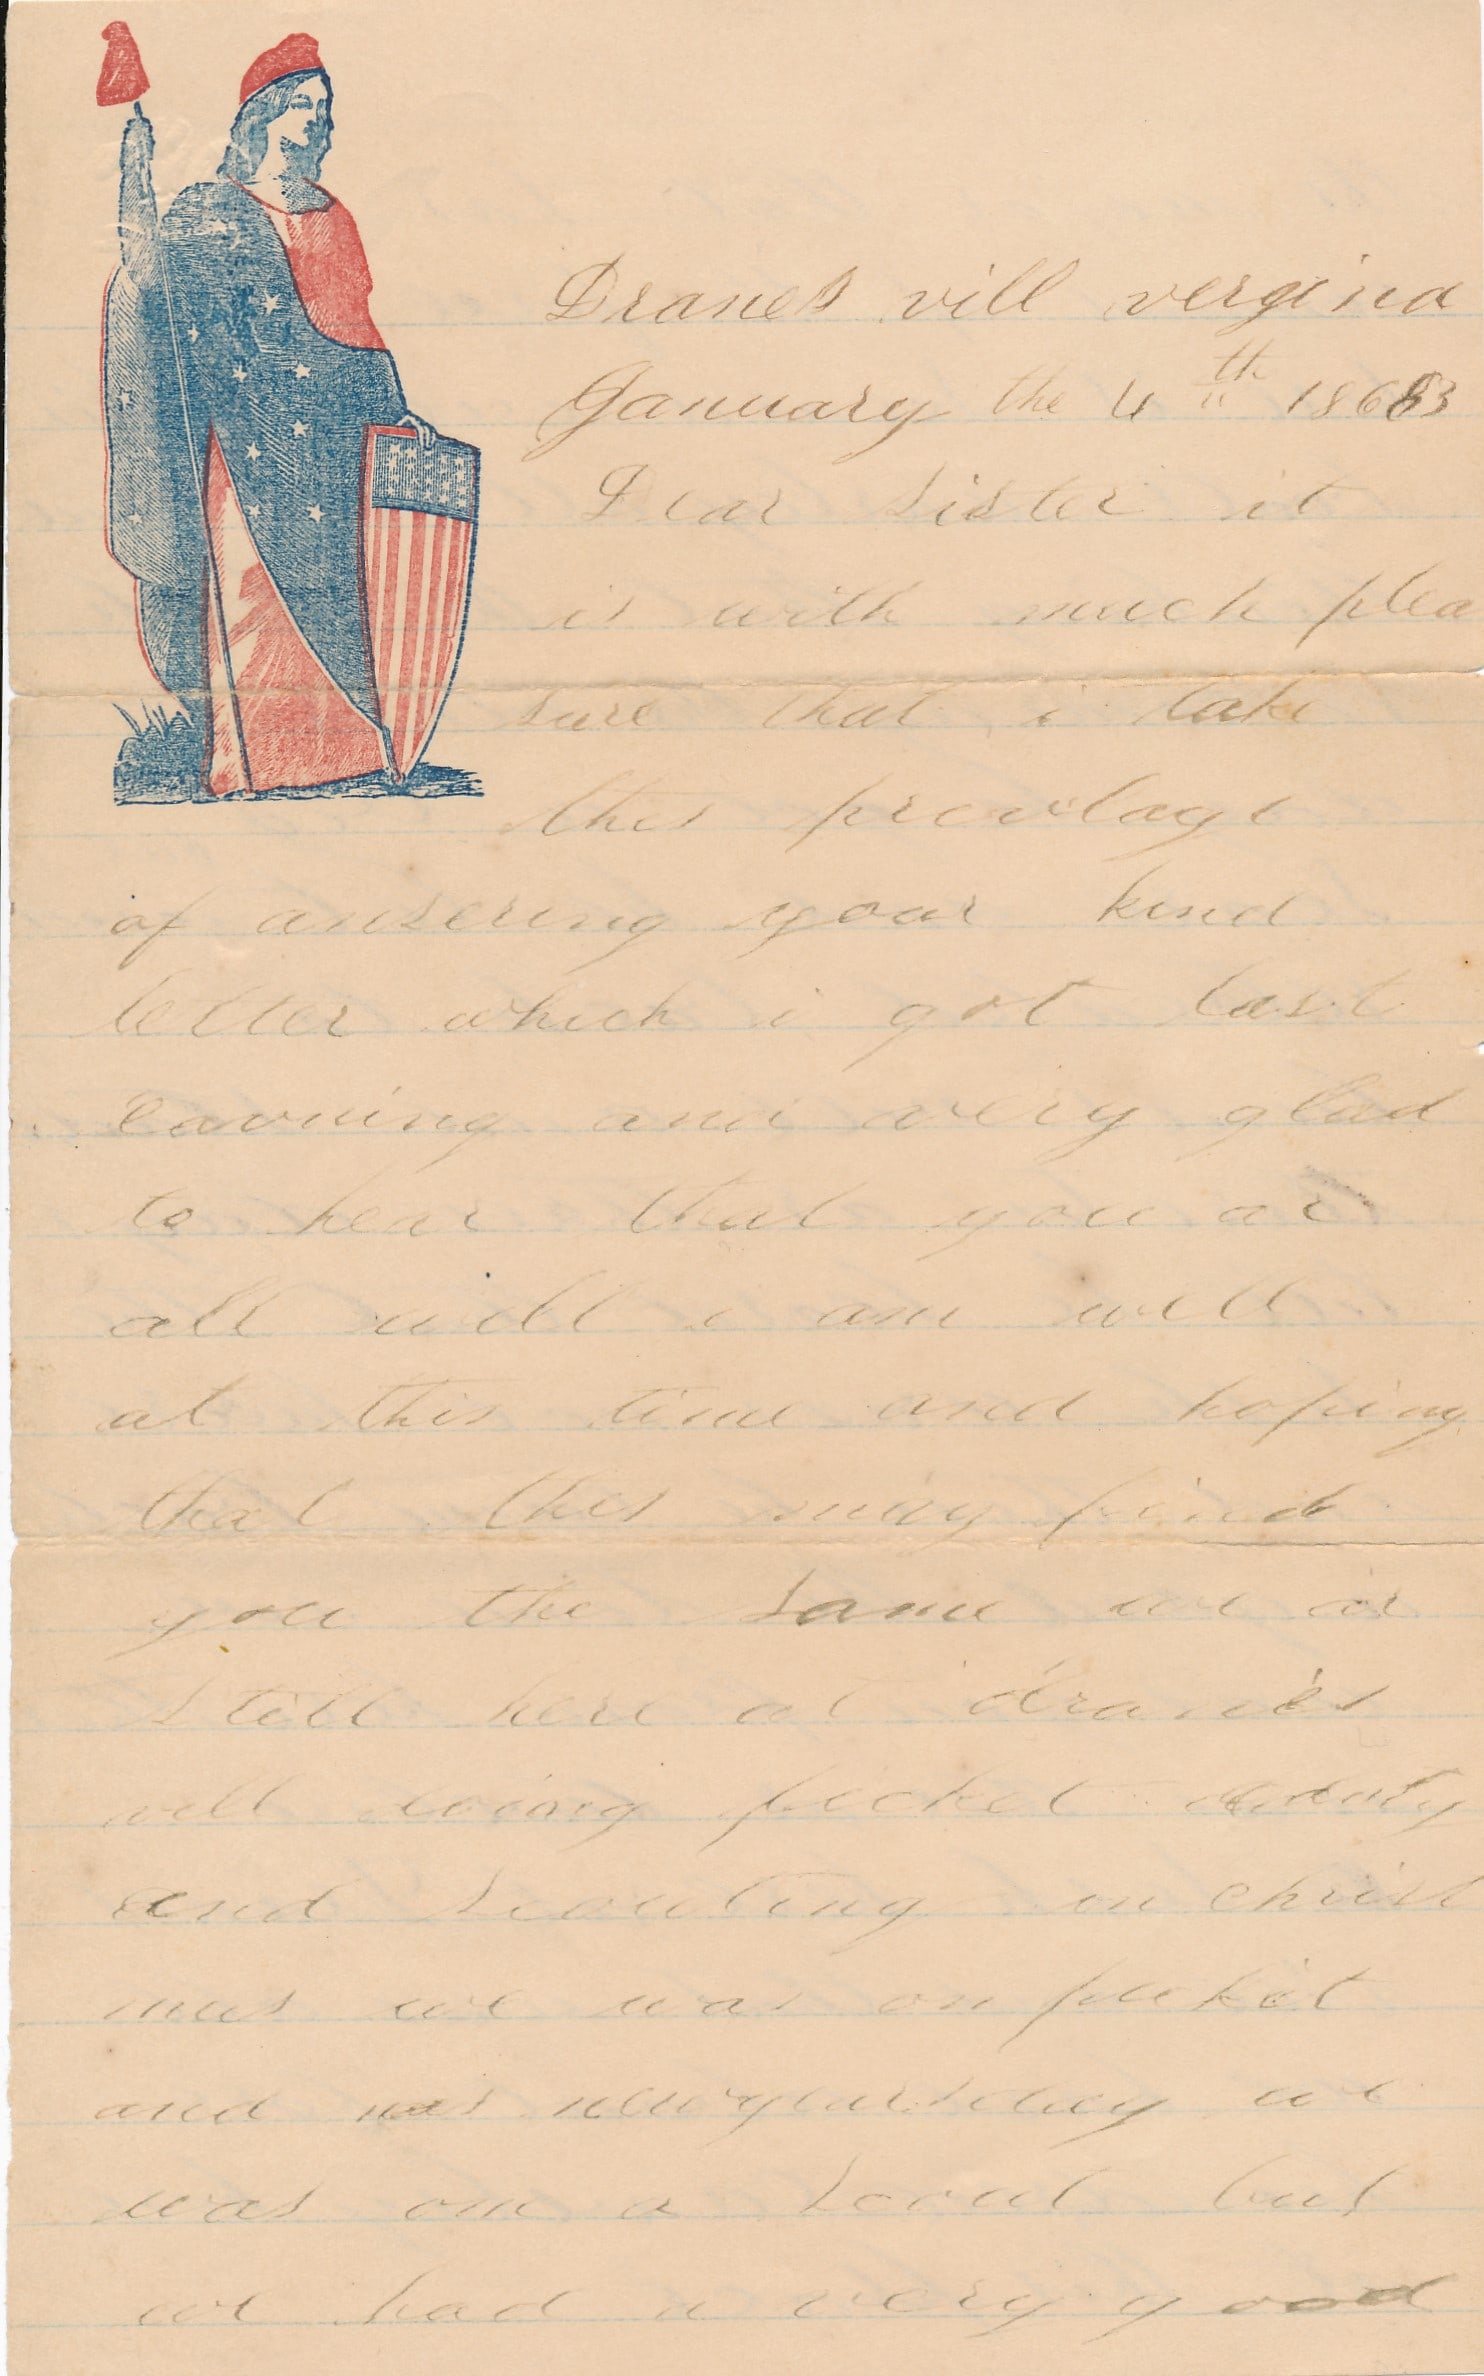 Dranes vill vergina
January the 4th 1863
Dear sister it
is with much plea
sure that i take
this prevelage
of ansering your kind
letter which i got last
eavning and very glad
to hear that you ar
all well i am well
at this time and hoping
that this may find
you the same we ar
still here at dranes
vill doing picket duty
and scouting on christ
mus we was on picket
and newyearsday we
was on a scout but
we had a very good